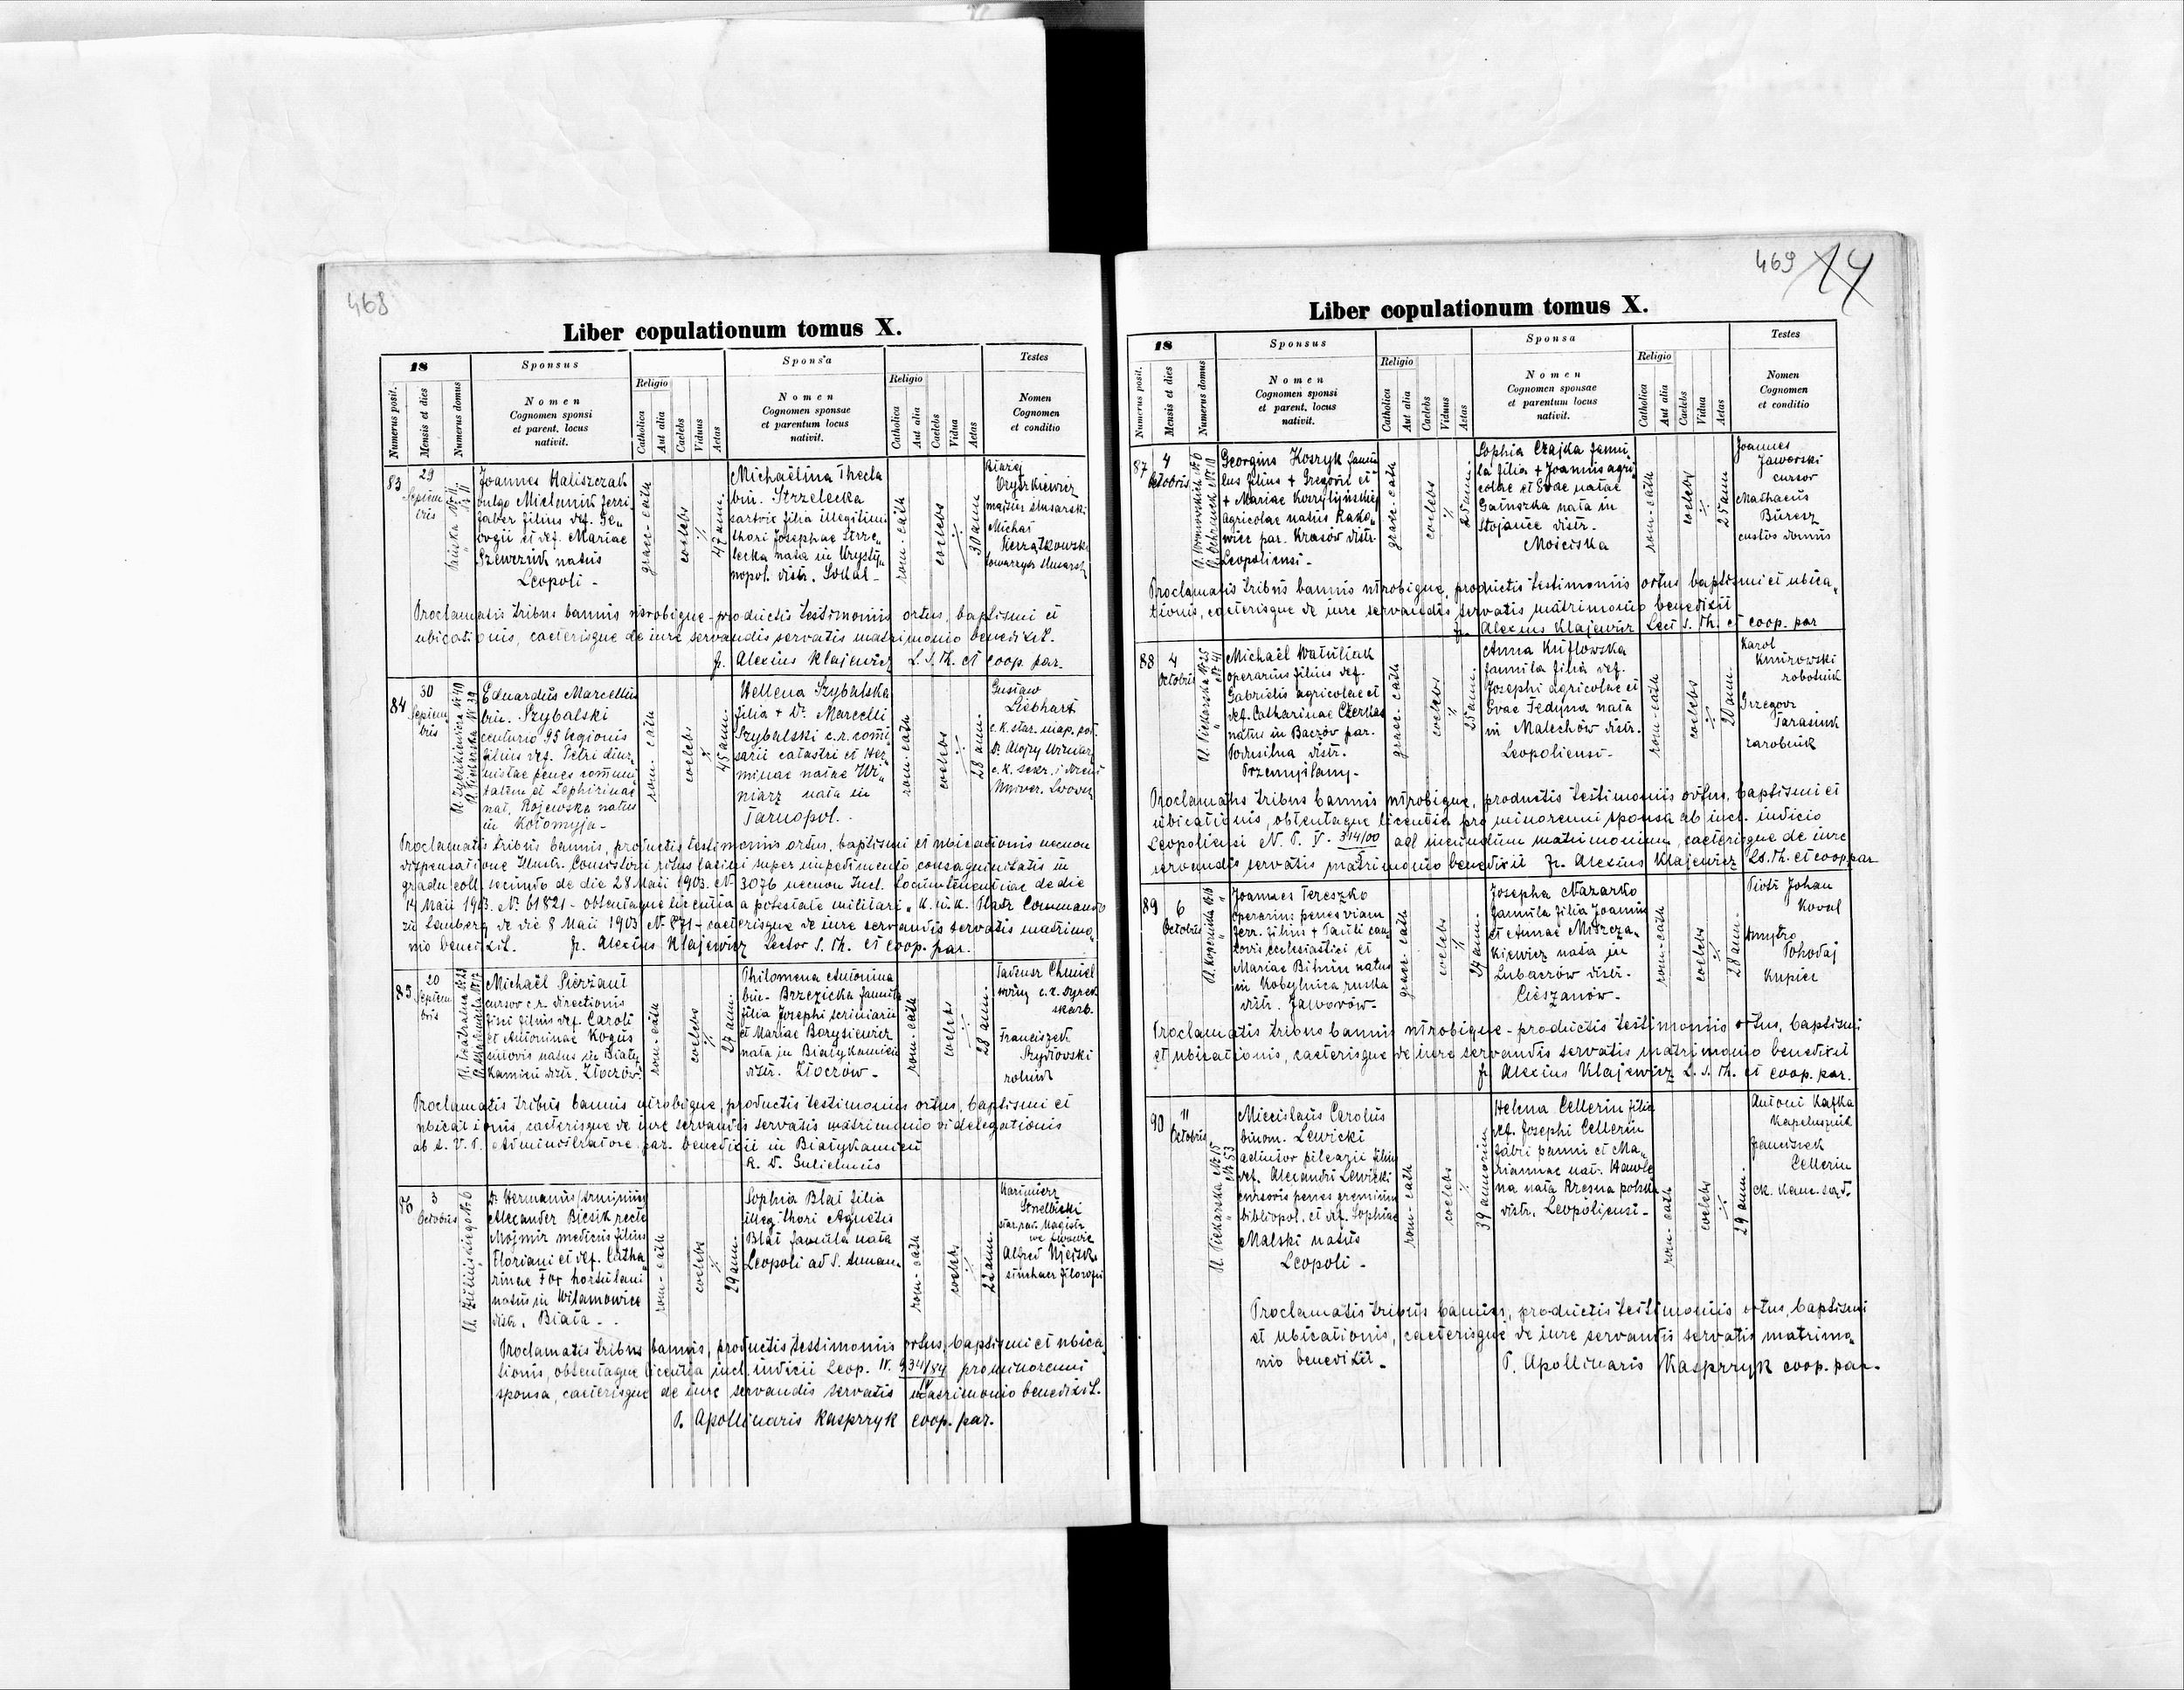 468
Liber copulationum tomus X.
18
Sponsus
Sponsa
Testes
Numerus posit.
Mensis et dies
Numerus domus
Nomen
Cognomen sponsi
et parent. locus
nativit.
Religio
Catholica
Aut alia
Caelebs
Viduus
Aetas
Nomen
Cognomen sponsae
et parentum locus
nativit.
Religio
Catholica
Aut alia
Caelebs
Vidua
Aetas
Nomen
Cognomen
et conditio
83
29
Septem
bris
Joannes Haliszczak
vulgo Mielnik ferri
faber filius def. Ge„
orgii et def. Mariae
Szewczuk natus
Leopoli -
graec-cath
coelebs
47 ann.
Michaëlina Thecla
bin. Strzelecka
sartrix filia illegitimi
thori Josephae Strze„
lecka nata in Krysty„
nopol distr. Sokal -
rom-cath
coelebs
30 ann
majster slusarski
Michał
Pierzątkowski
towarzysz slusarsk
Proclamatis tribus bannis utrobique - productis testimoniis ortus, baptismi et
ubicationis, caeterisque de iure servandis servatis matrimonio benedixit.
fr. Alexius Klajewicz L. S. Th. et coop. par.
84
30
Septem
bris
Eduardus Marcellus
bin. Szybalski
centurio 95 legionis
filius def. Petri diur„
nistae penes commu
nitatem et Zephirinae
nat. Rojewska natus
in Kołomyja -
rom-cath
coelebs
45 ann
Hellena Szybalska
filia + Dr. Marcelli
Szybalski c.r. comi
sarii catastri et Her„
minae natae Wi„
niarz nata in
Tarnopol.
rom-cath
coelebs
28 ann.
Gustaw
Liebhart
c.k. star. map. pol.
Dr. Alojzy Winiarz
c.k. sekr. i docent
Univer. Lwow
Proclamatis tribus bannis, productis testimoniis ortus, baptismi et ubicationis necnon
dispensatione Illustr. Consistorii ritus latini super impedimento consaguinitatis in
gradu coll. secundo de die 28 Maii 1903. N. 3076 necnon Incl. Locumtenentiae de die
14 Maii 1903. N. 61821 - obtentaque licentia a potestate militari „K. u. k. Platz Commando
zu Lemberg de die 8 Maii 1903 N. 871 - caeterisque de iure servandis servatis matrimo„
nio benedixit. fr. Alexius Klajewicz Lector S. Th. et coop. par.
85
20
Septem
bris
Michaël Pierzant
cursor c.r. directionis
fisci filius def. Caroli
et Antoninae Kogus
natus in Biały
Kamień distr. Złoczów.
rom-cath
coelebs
27 ann.
Philomena Antonina
bin. Brzezicka famula
filia Josephi scriniarii
et Mariae Borysiewicz
nata in Białykamień
distr. Złoczów -
rom-cath
coelebs
28 ann.
Tadeusz Chmiel
woźny c.k. dyrek
skarb.
Franciszek
Szydłowski
rolnik
Proclamatis tribus bannis utrobique, productis testimoniis ortus, baptismi et
ubicationis, caeterisque de iure servandis servatis matrimonio vi delegationis
ab A. V. P. Administratore par. benedixi in Białykamień
R. D. Gulielmus
86
3
Octobris
Dr Hermanus/Arminius
Alexander Biesik recte
Mojmir medicus filius
Floriani et def. Catha
rinae Fox hortulani
natus in Wilamowice
distr. Biała -
rom-cath
coelebs
29 ann.
Sophia Blat filia
illeg. thori Agnetis
Blat famula nata
Leopoli ad S. Annam
rom-cath
coelebs
22 ann.
Kazimierz
Strzelbicki
star. rad. Magistr.
we Lwowie
Alfred
słuchacz filozofii
Proclamatis tribus bannis, productis testimoniis ortus, baptismi et ubica
tionis, obtentaque licentia incl. iudicii Leop. IV. 934/84 pro minorenni
sponsa, caeterisque de iure servandis servatis matrimonio benedixit.
P. Apollinaris Kasprzyk coop. par.
469
14
Liber copulationum tomus X.
18
Sponsus
Sponsa
Testes
Numerus posit.
Mensis et dies
Numerus domus
Nomen
Cognomen sponsi
et parent. locus
nativit.
Religio
Catholica
Aut alia
Caelebs
Viduus
Aetas
Nomen
Cognomen sponsae
et parentum locus
nativit.
Religio
Catholica
Aut alia
Caelebs
Vidua
Aetas
Nomen
Cognomen
et conditio
87
4
Octobris
Georgius Koszyk famu
lus filius + Gregorii et
+ Mariae
Agricolae natus Rako„
wiec par. Krasów distr.
Leopoliensi -
graec-cath
coelebs
25 ann.
Sophia Czajka famu
la filia + Joannis agri
colae et Evae natae
Gainszka nata in
Stojańce distr.
Mościska
rom-cath
coelebs
25 ann
Joannes
Jaworski
cursor
Mathaeus
Buresz
custos domus
Proclamatis tribus bannis utrobique, productis testimoniis ortus baptismi et ubica„
tionis, caeterisque de iure servandis servatis matrimonio benedixit
fr. Alexius Klajewicz Lect. S. Th. et coop. par
88
4
Octobris
Michaël Watuliak
operarius filius def.
Gabrielis agricolae et
def. Catharinae Czerkas
natus in Baczów par.
Podusilna distr.
Przemyślany -
graec-cath
coelebs
25 ann.
Anna Kutłowska
famula filia def.
Josephi agricolae et
Evae Fedyna nata
in Malechów distr.
Leopoliensi -
rom-cath
coelebs
20 ann.
Karol
Knurowski
robotnik
Grzegorz
Tarasiuk
zarobnik
Proclamatis tribus bannis utrobique, productis testimoniis ortus, baptismi et
ubicationis, obtentaque licentia pro minorenni sponsa ab incl. iudicio
Leopoliensi N. P. V. 314/00 ad ineundum matrimonium, caeterisque de iure
servandis servatis matrimonio benedixit fr. Alexius Klajewicz L. S. Th. et coop. par
89
6
Octobris
Joannes Tereszko
operarius penes viam
ferr. filius + Pauli can
toris ecclesiastici et
Mariae Bihun natus
in Kobylnica ruska
distr. Jaworów -
graec-cath
coelebs
24 ann.
Josepha Nazarko
famula filia Joannis
et Annae Mizcza„
kiewicz nata in
Lubaczów distr.
Cieszanów -
rom-cath
coelebs
28 ann.
Piotr Johan
Koval
Dmytro
Pohodaj
kupiec
Proclamatis tribus bannis utrobique - productis testimoniis ortus, baptismi
et ubicationis, caeterisque de iure servandis servatis matrimonio benedixit
fr. Alexius Klajewicz L. S. Th. et coop. par.
90
11
Octobris
Miecislaus Carolus
binom. Lewicki
adiutor pilearii filius
def. Alexandri Lewicki
cursoris penes gremium
bibliopol. et def. Sophiae
Malski natus
Leopoli -
rom-cath
coelebs
39 annorum
Helena Cellerin filia
def. Josephi Cellerin
fabri panni et Ma„
riannae nat. Hawle
na nata Rzesna polska
distr. Leopoliensi -
rom-cath
coelebs
29 ann.
Antoni Kafka
Kapelusznik
Franciszek
Cellerin
ck. kanc. sąd.
Proclamatis tribus bannis, productis testimoniis ortus, baptismi
et ubicationis, caeterisque de iure servandis servatis matrimo„
nio benedixit -
P. Apollinaris Kasprzyk coop. par.